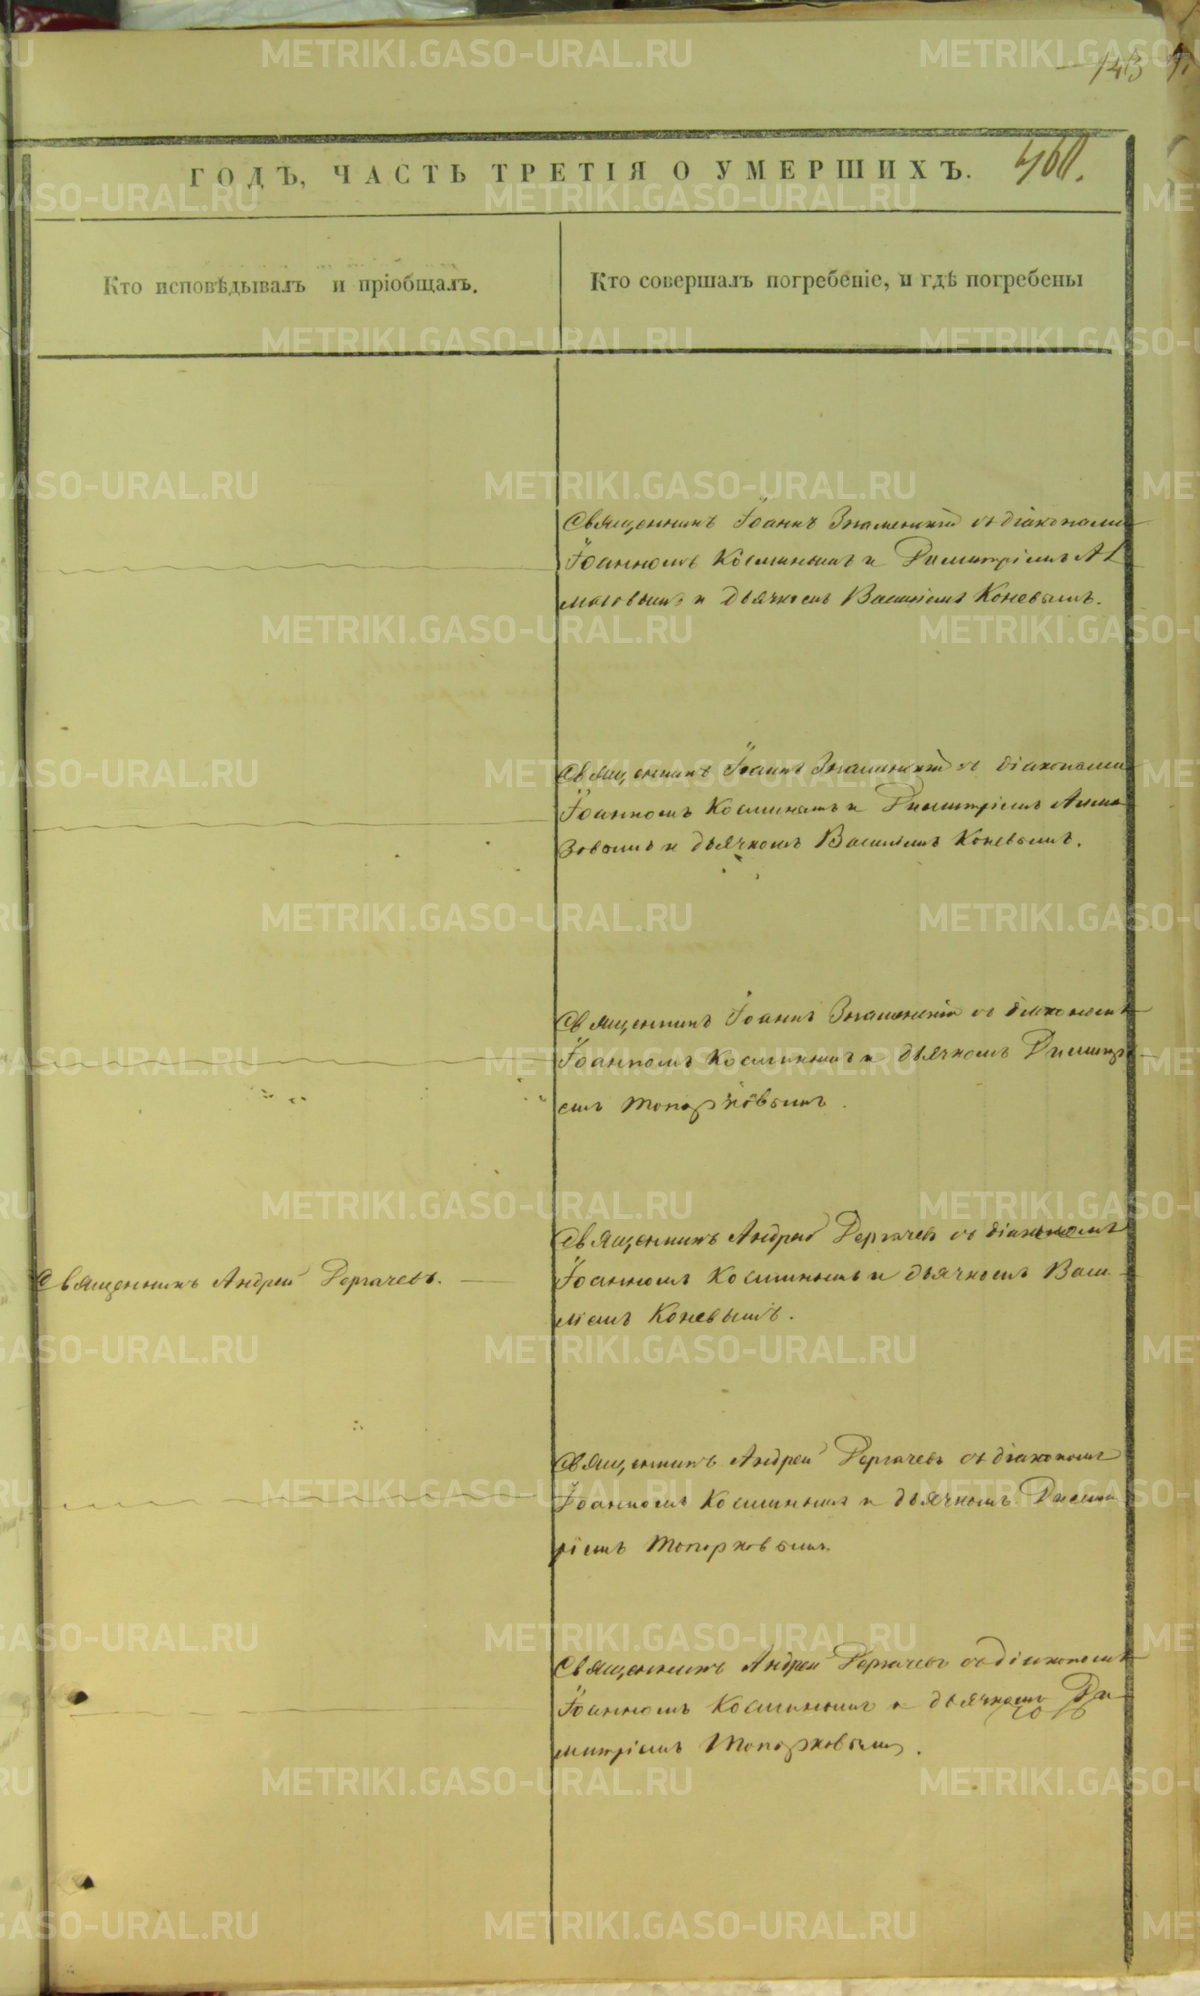 143
460.
ГОДЪ, ЧАСТЬ ТРЕТІЯ О УМЕРШИХЪ.
Кто исповѣдывалъ и пріобщалъ.
Кто совершалъ погребеніе, и гдѣ погребены
Священникъ Іоаннъ Знаменскій съ діаконами
Іоанномъ Косминымъ и Димитріемъ Ал
мазовымъ и дьячкомъ Василіемъ Коневымъ.
Священникъ Іоаннъ Знаменскій съ діаконами
Іоанномъ Косминымъ и Димитріемъ Алма
зовымъ и дьячкомъ Василіемъ Коневымъ.
Священникъ Іоаннъ Знаменскій съ діакономъ
Іоанномъ Косминымъ и дьячкомъ Димитрі
емъ Топорковымъ.
Священникъ Андрей Дергачевъ.
Священникъ Андрей Дергачевъ съ діакономъ
Іоанномъ Косминымъ и дьячкомъ Васи
ліемъ Коневымъ.
Священникъ Андрей Дергачевъ съ діакономъ
Іоанномъ Косминымъ и дьячкомъ Димит
ріемъ Топорковымъ.
Священникъ Андрей Дергачевъ съ діакономъ
Іоанномъ Косминымъ и дьячкомъ Ди
митріемъ Топорковымъ.
METRIKI.GASO-URAL.RU